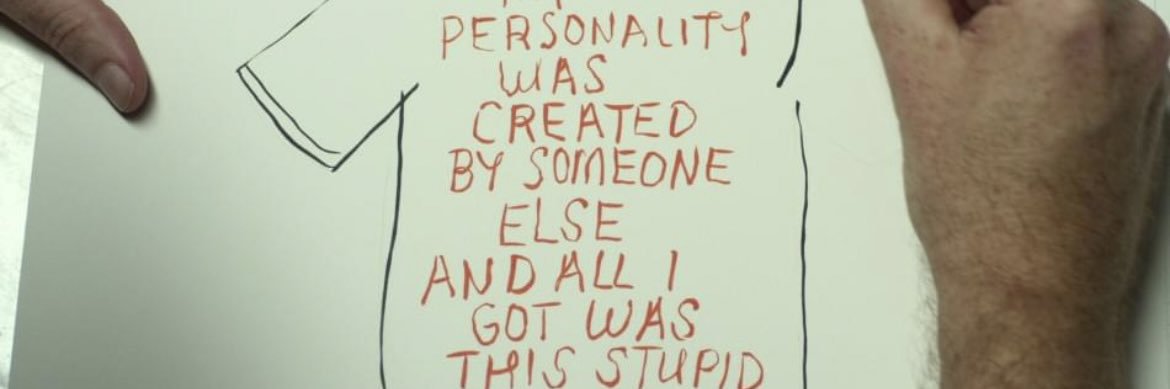 PERSONALITY
WAS
CREATED
BY SOMEONE
ELSE
AND ALL I
GOT WAS
THIS STUPID